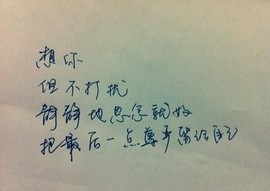 想你
但不打扰
静静地思念就好
把最后一点尊严留给自己